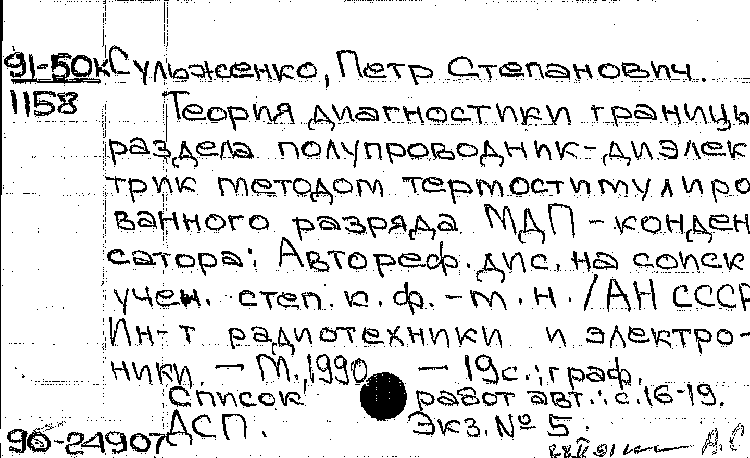 91-50к Сульженко, Петр Степанович.
1158 Теория диагностики границы
раздела полупроводник-диэлек
трик методом термостимулиро
ванного разряда МДП-конден
сатора: Автореф. дис. на соиск
учен. степ. к.ф.-м.н. / АН СССР
Ин-т радиотехники и электро-
ники. – М., 1990 – 19 с.: граф.
Список работ авт.: с.16-19.
ДСП. Экз. № 5.
90-24907
А.С